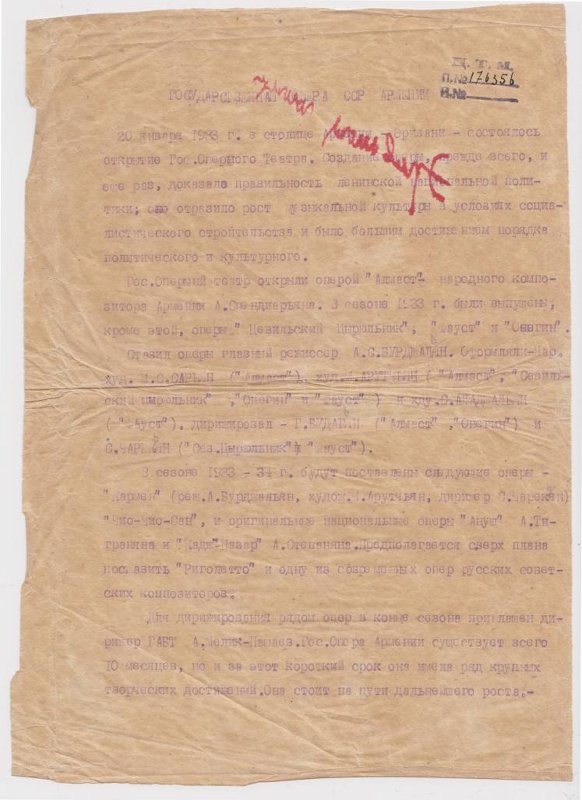 Ц.Т.М.
П.№ 176356
И.№
ГОСУДАРСТВЕННАЯ ОПЕРА ССР АРМЕНИИ
20 января 1933 г. в столице Армении - Эривани - состоялось
открытие Гос.Оперного Театра. Создание оперы, прежде всего, и
еще раз, доказало правильность ленинской национальной поли-
тики; оно отразило рост музыкальной культуры в условиях социа-
листического строительства и было большим достижением порядка
политического и культурного.
Гос.Оперный театр открыли оперой "Алмаст"- народного компо-
зитора Армении А.Спендиарьяна. В сезоне 1933 г. были выпущены,
кроме этой, оперы " Севильский Цырюльник", "Фауст" и "Онегин".
Ставил оперы главный режиссер А.С.БУРДЖАЛЯН. Оформляли-нар.
худ. М.С.САРЬЯН ("Алмаст"), худ. АРУТЧЬЯН ( "Алмаст", "Севиль-
ский цырюльник" ,"Онегин" и "Фауст") и худ.С.АЛАДЖАЛЬЯН
("Фауст"). дирижировал - Г.БУДАГЯН ("Алмаст" ,"Онегин") и
С.ЧАРЕКЯН ("Сев.Цырюльник" и "Фауст").
В сезоне 1933 - 34 г. будут поставлены следующие оперы -
"Кармен" (реж.А.Бурджальян, худож. Арутчьян, дирижер С.Чарекян)
"Чио-Чио-Сан", и оригинальные национальные оперы "Ануш" А.Ти-
граняна и "Кадж-Назар" А.Степаняна.Предполагается сверх плана
поставить "Риголетто" и одну из современных опер русских совет-
ских композиторов.
Для дирижирования рядом опер в конце сезона приглашен ди-
рижер ГАБТ А.Мелик-Пашаев.Гос.Опера Армении существует всего
10 месяцев, но и за этот короткий срок она имела ряд крупных
творческих достижений.Она стоит на пути дальнейшего роста.-